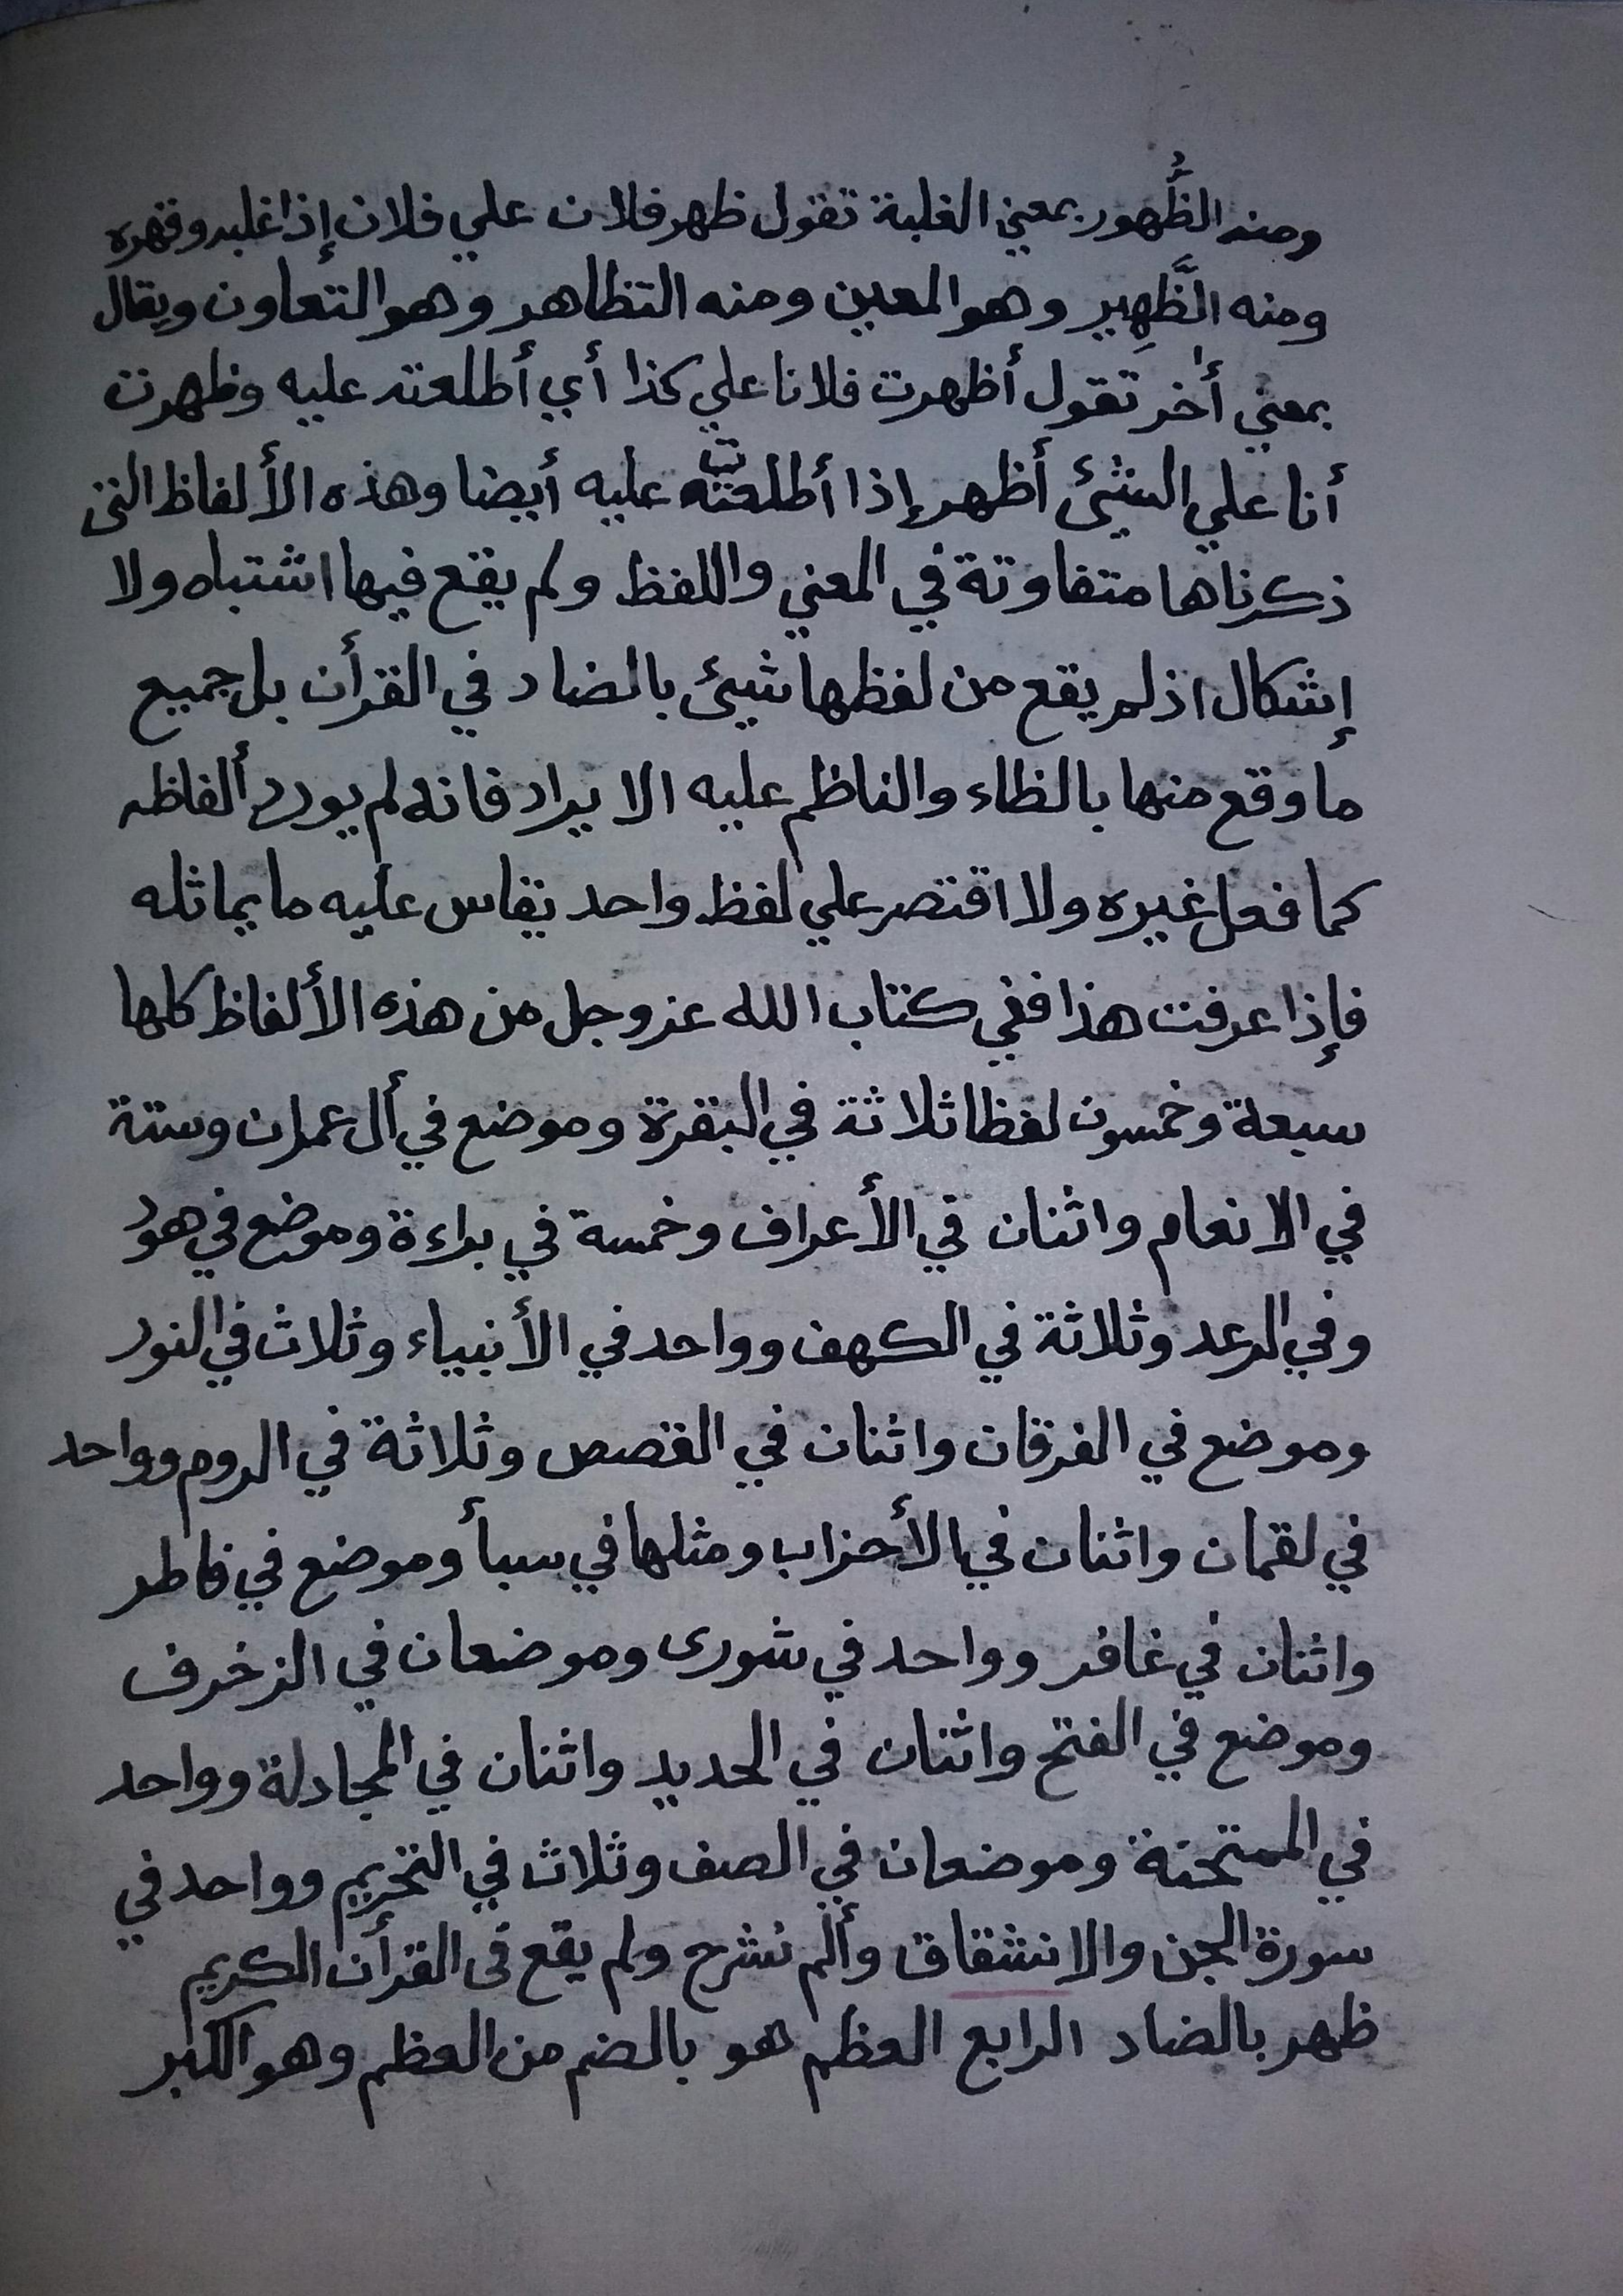 ومنه الظُّهور بمعني الغلبة تقول ظهر فلان علي فلان إذا غلبه وقهره
ومنه الظَّهِير وهو المعين ومنه التظاهر وهو التعاون ويقال
بمعني أخر تقول أظهرت فلانا علي كذا أي أطلعته عليه وظهرت
أنا علي الشيئ أظهر إذا أطلعته عليه أيضا وهذه الألفاظ التي
ذكرناها متفاوتة في المعني واللفظ ولم يقع فيها اشتباه ولا
إشكال اذ لم يقع من لفظها شيئ بالضاد في القرأن بل جميع
ما وقع منها بالظاء والناظم عليه الا يراد فانه لم يورد ألفاظه
كما فعل غيره ولا اقتصر علي لفظ واحد تقاس عليه ما يماثله
فإذا عرفت هذا ففي كتاب الله عز وجل من هذه الألفاظ كلها
سبعة وخمسون لفظا ثلاثة في البقرة وموضع في أل عمران وستة
في الانعام واثنان في الأعراف وخمسة في براءة وموضع في هود
وفي الرعد وثلاثة في الكهف وواحد في الأنبياء وثلاث في النور
وموضع في الفرقان واثنان في القصص وثلاثة في الروم وواحد
في لقمان واثنان في الأحزاب ومثلها في سبأ وموضع في فاطر
واثنان في غافر وواحد في شورى وموضعان في الزخرف
وموضع في الفتح واثنان في الحديد واثنان في المجادلة وواحد
في الممتحنة وموضعان في الصف وثلاث في التحريم وواحد في
سورة الجن والانشقاق وألم نشرح ولم يقع فى القرأن الكريم
ظهر بالضاد الرابع العظم هو بالضم من العظم وهو الكبر